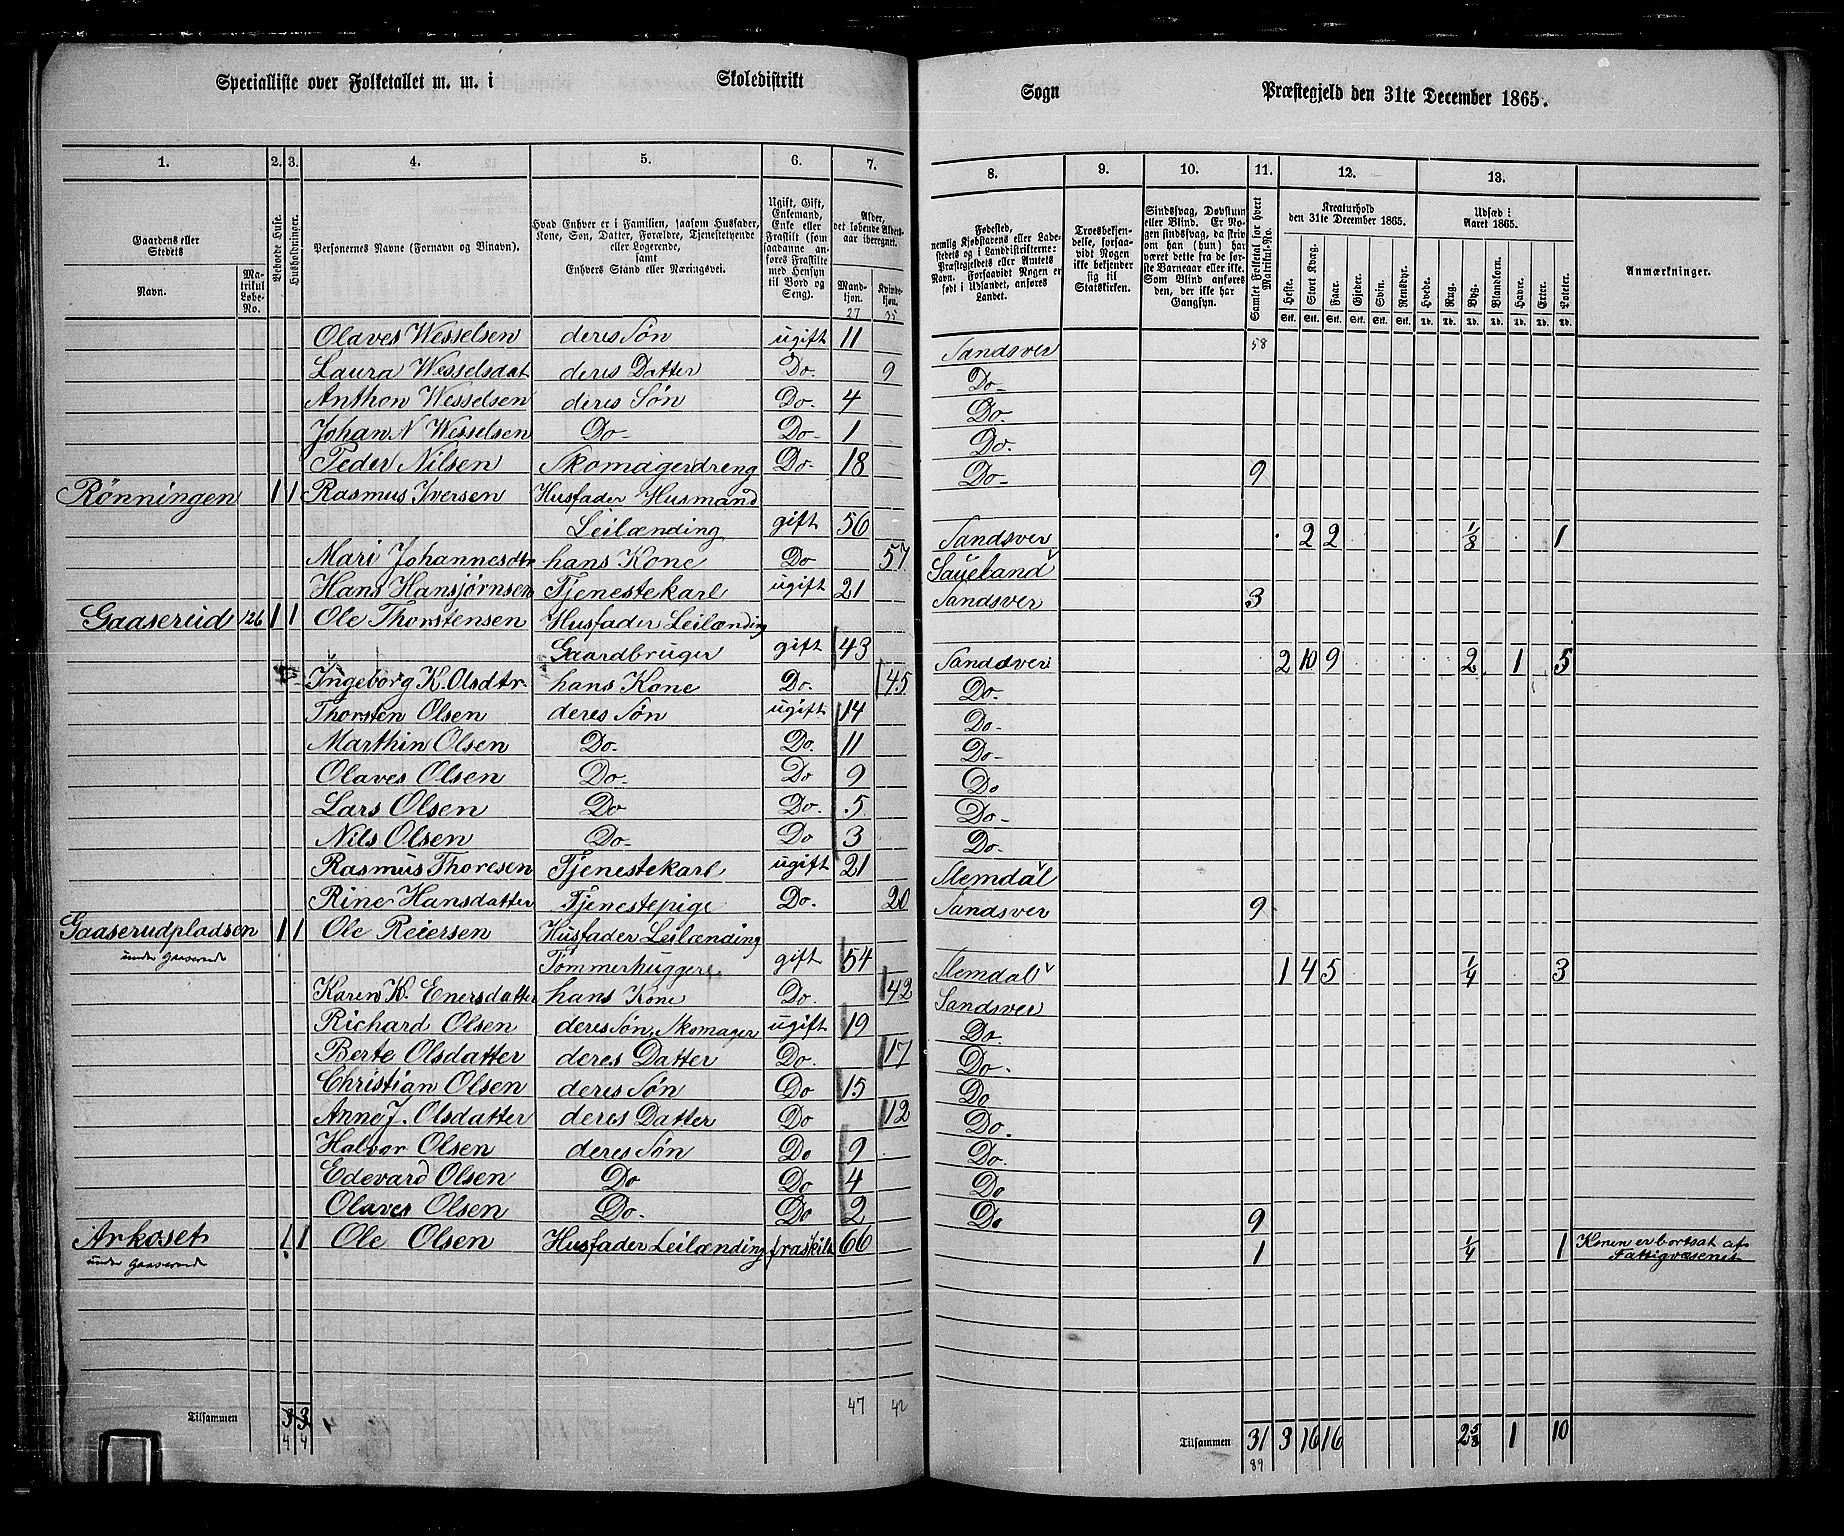 Specialliste over Folketallet m. m. i Skoledistrikt Sogn Præstegjeld den 31te December 1865.
1. 2. 3. 4. 5. 6. 7. 8. 9. 10. 11. 12. 13.
Gaardens eller Stedets Navn. Matrikul Løbe-No.
Beboede Huse.
Husholdninger.
Personernes Navne (Fornavn og Tilnavn).
Hvad Enhver er i Familien, saasom Husfader, Kone, Søn, Datter, Forældre, Tjenestetyende eller Logerende, samt Enhvers Stand eller Næringsvei.
Ugift, Gift, Enkemand, Enke eller Fraskilt (som saadanne anføres Fraskilte med Hensyn til Bord og Seng).
Alder, det løbende Aldersaar iberegnet. Mandkjøn. Kvindekjøn.
27 35
Fødested, nemlig Kjøbstadens eller Ladestedets og i Landdistrikterne: Præstegjeldets eller Amtets Navn. Forsaavidt Nogen er født i Udlandet, anføres Landet.
Troesbekjendelse, forsaavidt Nogen ikke bekjender sig til Statskirken.
Sindssvag, Døvstum eller Blind. Er Nogen sindssvag, da skrives om han (hun) har været dette fra de første Barneaar eller ikke. Som Blind anføres den, der ikke har Gangsyn.
Samlet Folketal for hvert Matrikul-No.
Kreaturhold den 31te December 1865.
Heste. Stort Kvæg. Faar. Gjeder. Svin. Rensdyr.
Stk. Stk. Stk. Stk. Stk. Stk.
Udsæd i Aaret 1865.
Hvede. Rug. Byg. Blandkorn. Havre. Erter. Poteter.
Td. Td. Td. Td. Td. Td. Td.
Anmærkninger.
Olaves Wesselsen deres Søn ugift 11 Sandsver 58
Laura Wesselsdat deres Datter Do. 9 Do-
Anthon Wesselsen deres Søn Do- 4 Do-
Johan N Wesselsen Do- Do- 1 Do.
Peder Nilsen Skomagerdreng Do- 18 Do- 9
Rønningen 1 1 Rasmus Iversen Husfader Husmand
Leilænding gift 56 Sandsver 2 2 1/8 1
Mari Johannesdtr hans Kone Do 57 Saueland
Hans Hansjørnsen Tjenestekarl ugift 21 Sandsver 3
Gaaserud 126 1 1 Ole Thorstensen Husfader Leilænding
Gaardbruger gift 43 Sandsver 2 10 9 2 1 5
Ingeborg K. Olsdtr. hans Kone Do. 45 Do-
Thorsten Olsen deres Søn ugift 14 Do-
Marthin Olsen Do- Do. 11 Do-
Olaves Olsen Do- Do 9 Do
Lars Olsen Do Do. 5 Do-
Nils Olsen Do- Do 3 Do-
Rasmus Thoresen Tjenestekarl ugift 21 Slemdal
Rine Hansdatter Tjenestepige Do. 20 Sandsver 9
Gaaserudpladsen 1 1 Ole Reiersen Husfader Leilænding
under Gaaserud Tømmerhugger gift 54 Slemdal 1 4 5 1/4 3
Karen K. Enersdatter hans Kone Do. 42 Sandsver
Richard Olsen deres Søn, Skomager ugift 19 Do
Berte Olsdatter deres Datter Do. 17 Do-
Christian Olsen deres Søn Do 15 Do
Anne J. Olsdatter deres Datter Do 12 Do.
Halvor Olsen deres Søn Do 9 Do.
Edevard Olsen Do Do 4 Do
Olaves Olsen Do- Do 2 Do 9
Arkoset 1 1 Ole Olsen Husfader Leilænding fraskilt 66 1 1/4 1 Konen er bortsat af
under Gaaserud Fattigvæsenet
47 42
Tilsammen 3 3
4 4
Tilsammen 31 3 16 16 2 5/8 1 10
89